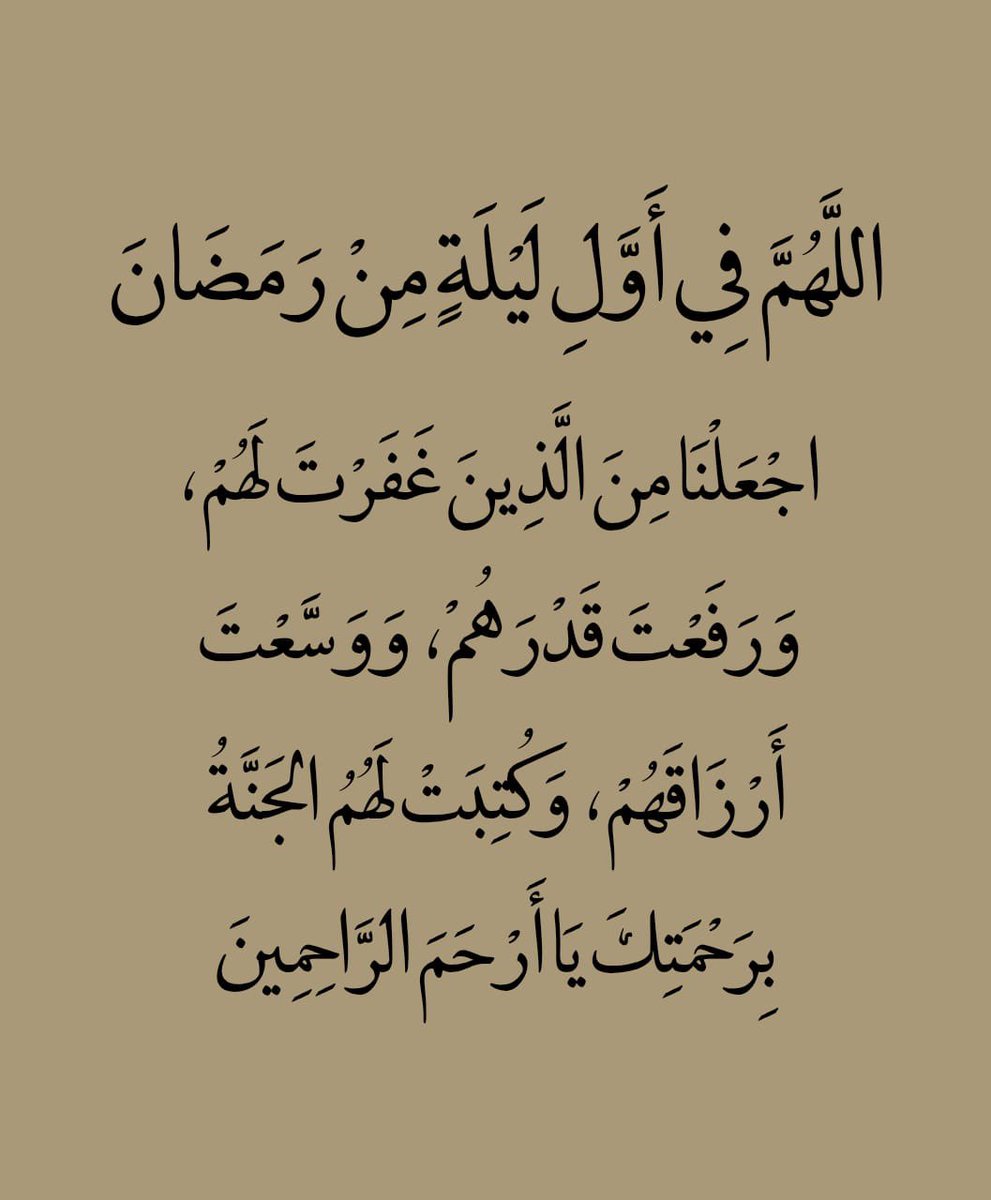 اللَّهُمَّ فِي أَوَّلِ لَيْلَةٍ مِنْ رَمَضَانَ
اجْعَلْنَا مِنَ الَّذِينَ غَفَرْتَ لَهُمْ،
وَرَفَعْتَ قَدْرَهُمْ، وَوَسَّعْتَ
أَرْزَاقَهُمْ، وَكُتِبَتْ لَهُمُ الجَنَّةُ
بِرَحْمَتِكَ يَا أَرْحَمَ الرَّاحِمِينَ